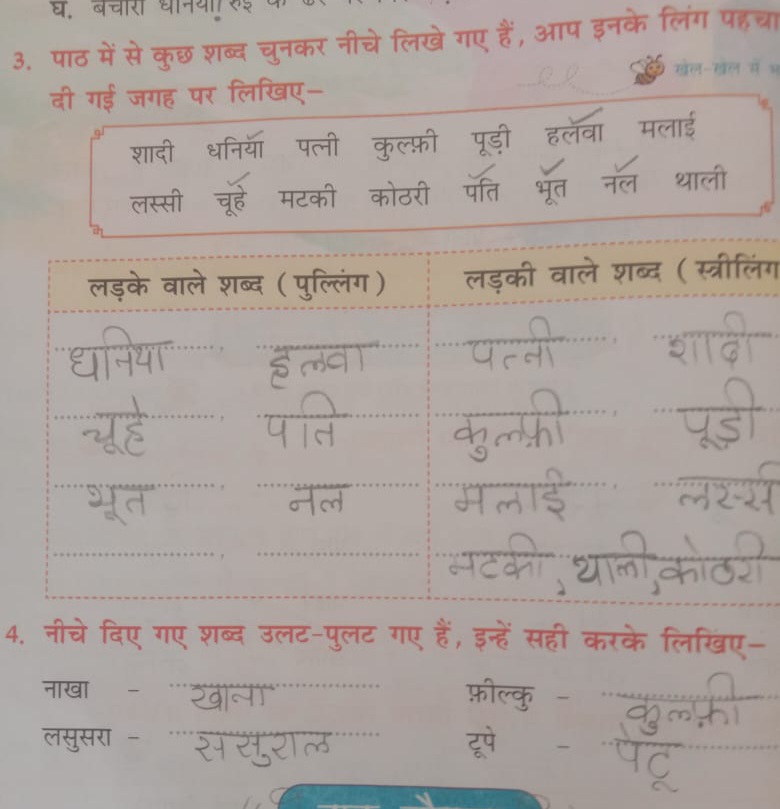 घ. बेचारा धनिया!
3. पाठ में से कुछ शब्द चुनकर नीचे लिखे गए हैं, आप इनके लिंग पहचा
खेल-खेल में
दी गई जगह पर लिखिए–
शादी धनियाँ पत्नी कुल्फ़ी पूड़ी हलवा मलाई
लस्सी चूहे मटकी कोठरी पति भूत नल थाली
लड़के वाले शब्द (पुल्लिंग) लड़की वाले शब्द (स्त्रीलिंग
धनिया हलवा पत्नी शादी
चूहे पति कुल्फ़ी पूड़ी
भूत नल मलाई लस्स
मटकी, थाली, कोठरी
4. नीचे दिए गए शब्द उलट-पुलट गए हैं, इन्हें सही करके लिखिए–
नाखा – खाना फ़ील्कु – कुल्फ़ी
लसुसरा – ससुराल टूपे – पेटू